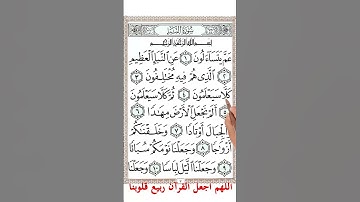 سُورَةُ النَّبَإِ
بِسْمِ اللَّهِ الرَّحْمَٰنِ الرَّحِيمِ
عَمَّ يَتَسَاءَلُونَ ١ عَنِ النَّبَإِ الْعَظِيمِ
٢ الَّذِي هُمْ فِيهِ مُخْتَلِفُونَ ٣
كَلَّا سَيَعْلَمُونَ ٤ ثُمَّ كَلَّا سَيَعْلَمُونَ
٥ أَلَمْ نَجْعَلِ الْأَرْضَ مِهَادًا ٦
وَالْجِبَالَ أَوْتَادًا ٧ وَخَلَقْنَاكُمْ
أَزْوَاجًا ٨ وَجَعَلْنَا نَوْمَكُمْ سُبَاتًا
٩ وَجَعَلْنَا اللَّيْلَ لِبَاسًا ١٠ وَجَعَلْنَا
اللهم اجعل القرآن ربيع قلوبنا